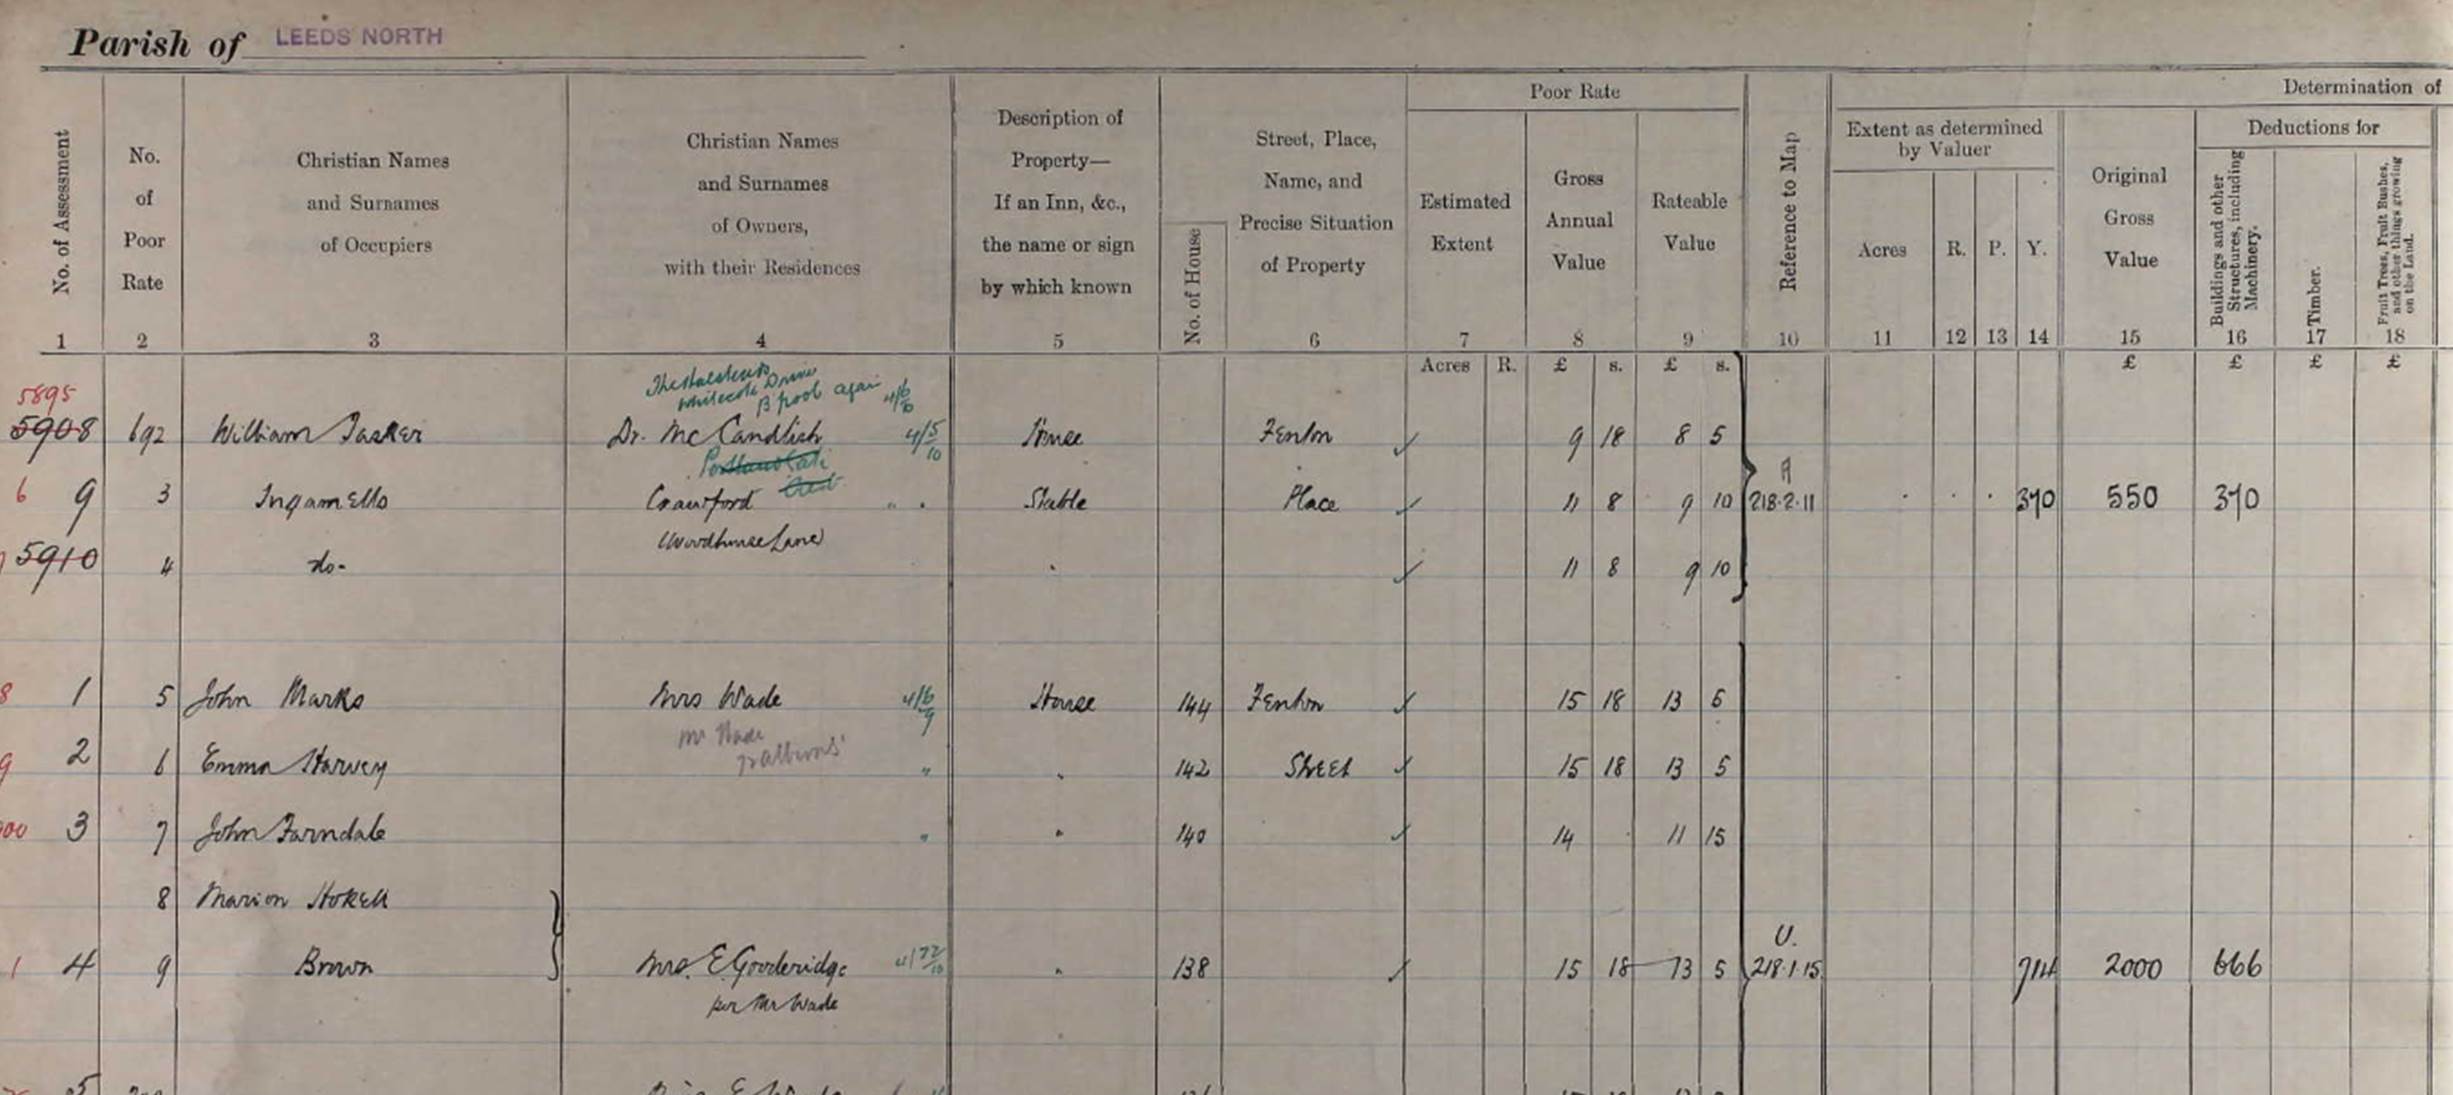 Parish of LEEDS NORTH
Poor Rate
Determination of
No. of Assessment
1
No.
of
Poor
Rate
2
Christian Names
and Surnames
of Occupiers
3
Christian Names
and Surnames
of Owners,
with their Residences
4
Description of
Property—
If an Inn, &c.,
the name or sign
by which known
5
No. of House
Street, Place,
Name, and
Precise Situation
of Property
6
Estimated
Extent
7
Gross
Annual
Value
8
Rateable
Value
9
Reference to Map
10
Extent as determined
by Valuer
Acres
11
R.
12
P.
13
Y.
14
Original
Gross
Value
15
Deductions for
Buildings and other
Structures, including
Machinery.
16
Timber.
17
Fruit Trees, Fruit Bushes,
and other things growing
on the Land.
18
Acres R. £ s. £ s. £ £ £ £
B pool again 4/6/10
5895
5908 692 William Tasker Dr. McCandlish 4/5/10 House Fenton 9 18 8 5
6 9 3 Ingamells Crawford " " Stable Place 11 8 9 10 218·2·11 370 550 370
Woodhouse Lane
5910 4 do- 11 8 9 10
8 1 5 John Marks Mrs Wade 4/6/9 House 144 Fenton 15 18 13 5
Mr Wade
9 2 6 Emma Harvey " " 142 Street 15 18 13 5
900 3 7 John Farndale " " 140 14 11 15
8 Marion
U.
1 4 9 Brown Mrs. E. Gooderidge " 138 15 18 13 5 218·1·15 714 2000 666
per Mr Wade
5